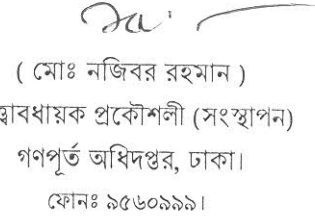 ( মোঃ নজিবর রহমান )
প্রকৌশলী (সংস্থাপন)
গণপূর্ত অধিদপ্তর, ঢাকা।
ফোনঃ ৯৫৬০৯৯৯।